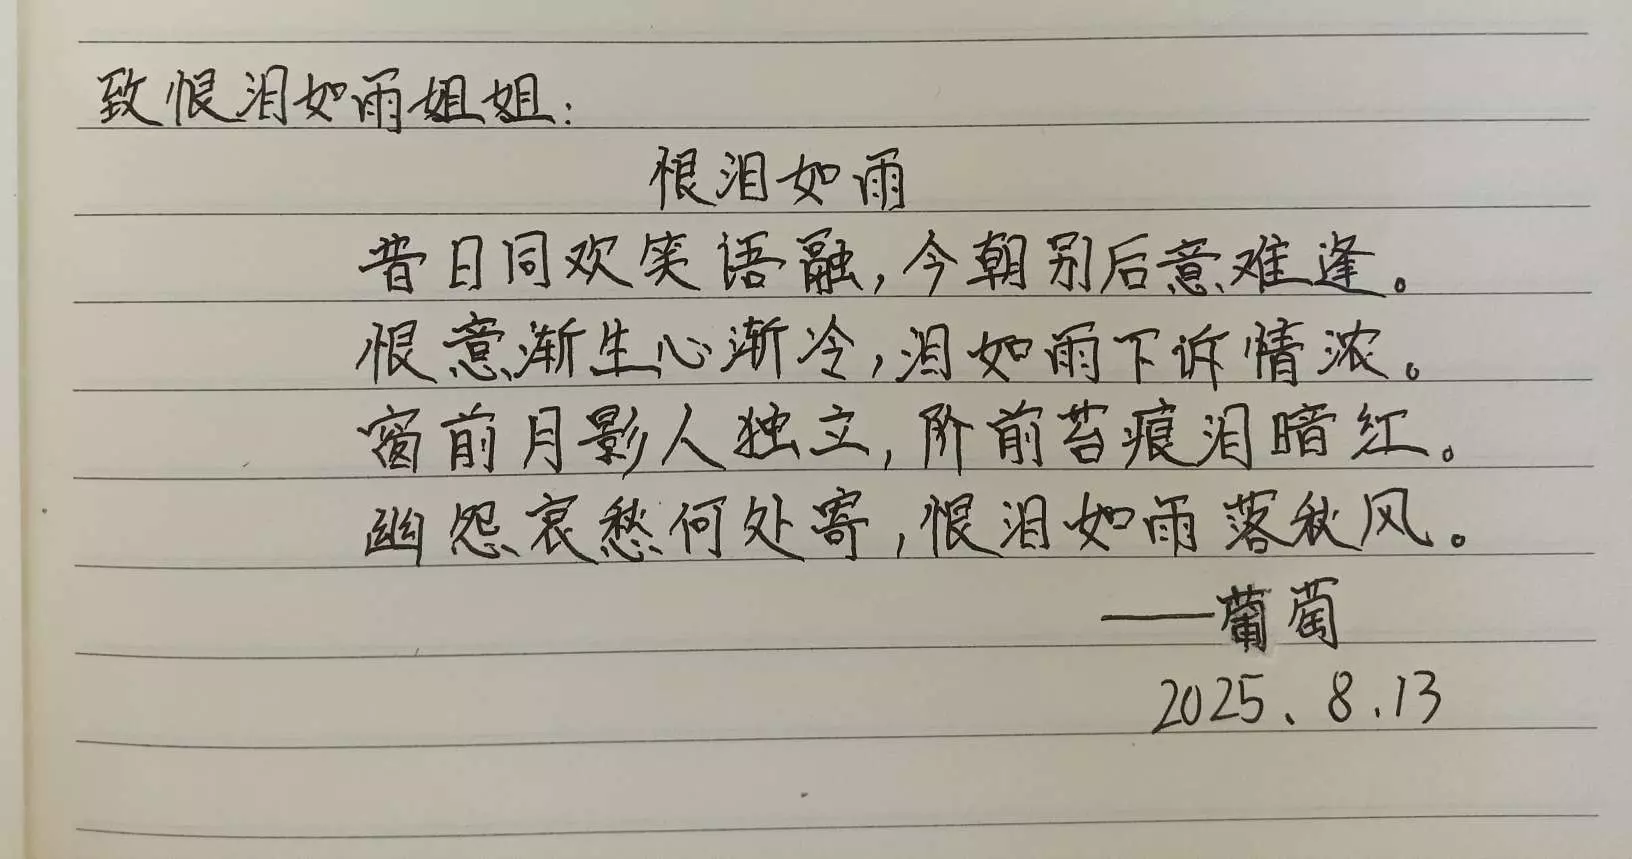 致恨泪如雨姐姐:
恨泪如雨
昔日同欢笑语融,今朝别后意难逢。
恨意渐生心渐冷,泪如雨下诉情浓。
窗前月影人独立,阶前苔痕泪暗红。
幽怨哀愁何处寄,恨泪如雨落秋风。
——葡萄
2025.8.13